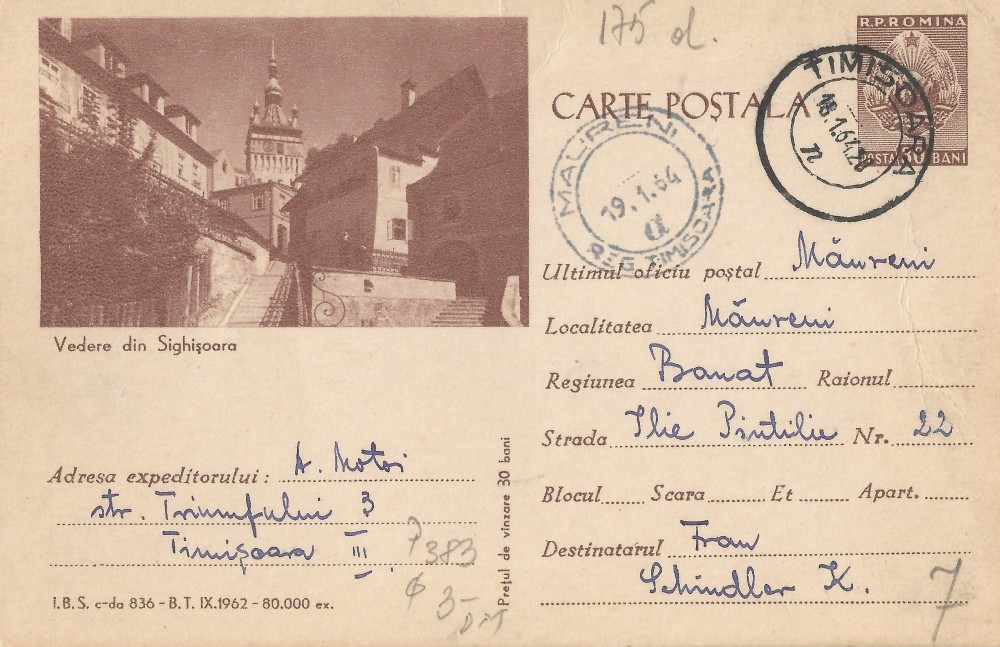 175 d.
R.P.ROMINA
CARTE POȘTALA
POSTA 30 BANI
TIMIȘOARA
18.1.64.20
MAURENI
19.1.64
a
REG TIMISOARA
Vedere din Sighișoara
Ultimul oficiu poștal Măureni
Localitatea Măureni
Regiunea Banat Raionul
Strada Ilie Pintilie Nr. 22
Blocul Scara Et Apart.
Destinatarul Frau
Schindler K.
Adresa expeditorului : A. Motoi
str. Triumfului 3
Timișoara III
383
3-
7
Prețul de vînzare 30 bani
I.B.S. c-da 836 - B.T. IX.1962 - 80.000 ex.